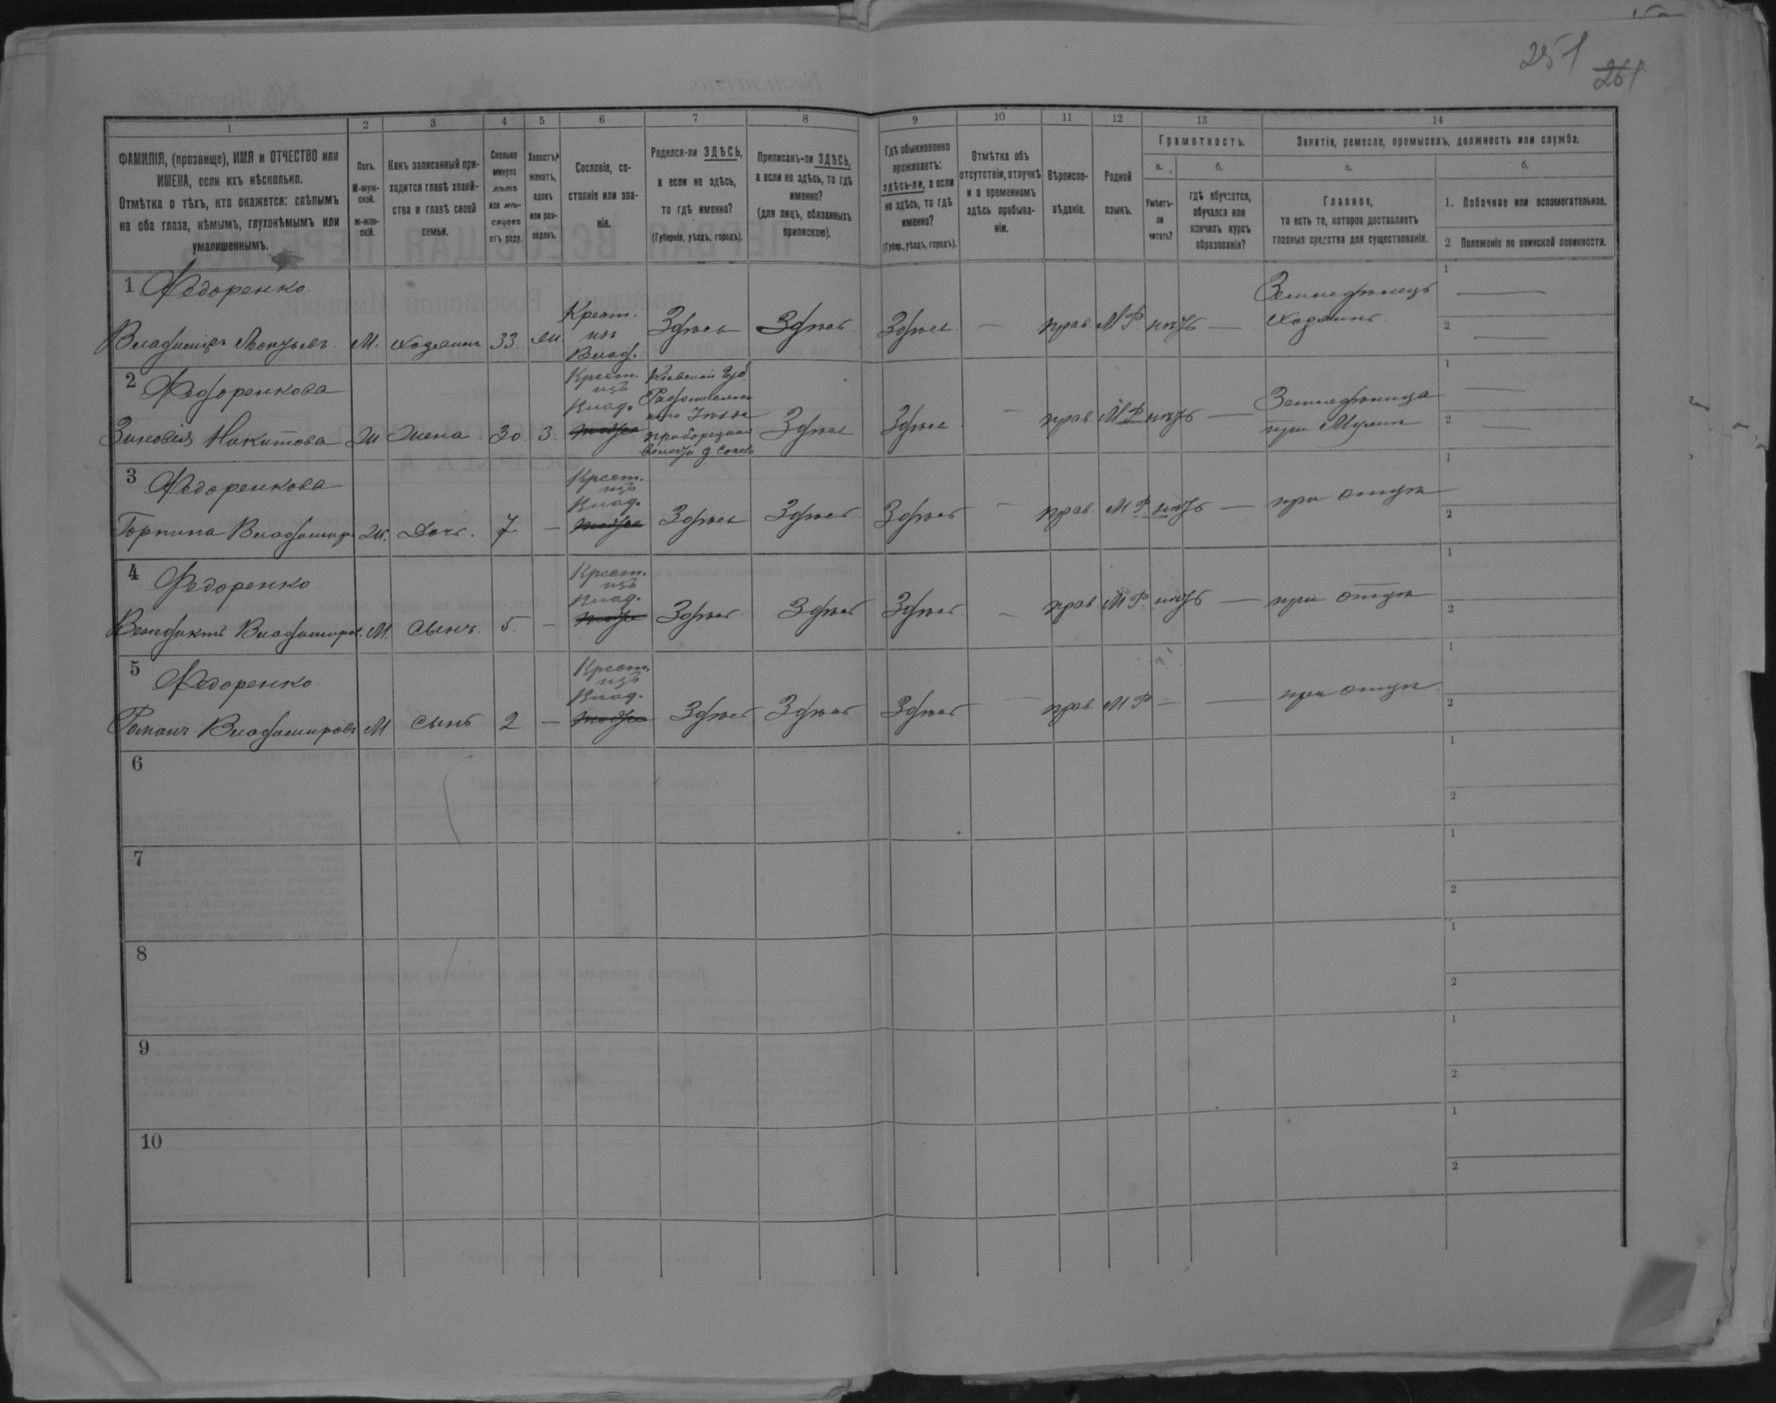 251
261
1
2
3
4
5
6
7
8
9
10
11
12
13
14
ФАМИЛІЯ, (прозвище), ИМЯ и ОТЧЕСТВО или
ИМЕНА, если ихъ нѣсколько.
Отмѣтка о тѣхъ, кто окажется: слѣпымъ
на оба глаза, нѣмымъ, глухонѣмымъ или
умалишеннымъ.
Полъ.
М-муж-
ской.
ж-жен-
скій.
Какъ записанный при-
ходится главѣ хозяй-
ства и главѣ своей
семьи.
Сколько
минуло
лѣтъ
или мѣ-
сяцевъ
отъ роду.
Холостъ,
женатъ,
вдовъ
или раз-
веденъ.
Сословіе, со-
стояніе или зва-
ніе.
Родился-ли ЗДѢСЬ,
а если не здѣсь,
то гдѣ именно?
(Губернія, уѣздъ, городъ).
Приписанъ-ли ЗДѢСЬ,
а если не здѣсь, то гдѣ
именно?
(для лицъ, обязанныхъ
припискою).
Гдѣ обыкновенно
проживаетъ:
здѣсь-ли, а если
не здѣсь, то гдѣ
именно?
(Губер., уѣздъ, городъ).
Отмѣтка объ
отсутствіи, отлучкѣ
и о временномъ
здѣсь пребыва-
ніи.
Вѣроиспо-
вѣданіе.
Родной
языкъ.
Грамотность.
а.
б.
Умѣетъ-
ли
читать?
гдѣ обучается,
обучался или
кончилъ курсъ
образованія?
Занятія, ремесло, промыселъ, должность или служба.
а.
б.
Главное,
то есть то, которое доставляетъ
главныя средства для существованія.
1. Побочное или вспомогательное.
2 Положеніе по воинской повинности.
1 Федоренко
Владиміръ М. хозяинъ 33. Крест. изъ Влад. Здѣсь Здѣсь Здѣсь — прав М Р нѣтъ — Земледѣлецъ хозяинъ.
1 —
2 —
2 Федоренкова
Зиновія Никитова Ж Жена 30 З. Крест. изъ Влад. Кіевской Губ. Радомысльска го Уѣзда Здѣсь Здѣсь — прав М Р нѣтъ — Земледѣлица при Мужи
1 —
2 —
3 Федоренкова
Горпина Владимир. Ж. Дочь. 7 — Крест. изъ Влад. Здѣсь Здѣсь Здѣсь — прав. М Р нѣтъ — при отцѣ
1
2
4 Федоренко
Венедиктъ Владимиров. М. сынъ. 5. — Крест. изъ Влад. Здѣсь Здѣсь Здѣсь — прав М Р. нѣтъ — при отцѣ
1
2
5 Федоренко
Романъ Владимировъ М сынъ 2 — Крест. изъ Влад. Здѣсь Здѣсь Здѣсь — прав. М Р — — при отцѣ
1
2
6
1
2
7
1
2
8
1
2
9
1
2
10
1
2